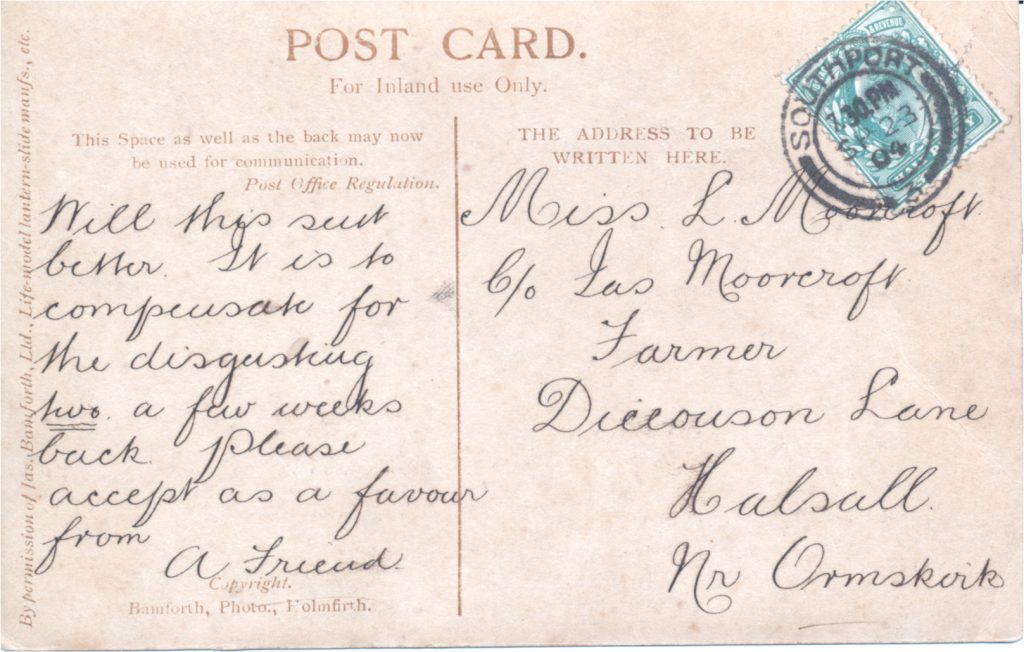 POST CARD.
For Inland use Only.
This Space as well as the back may now
be used for communication.
Post Office Regulation.
THE ADDRESS TO BE
WRITTEN HERE.
Will this suit
better. It is to
compensate for
the disgusting
two. a few weeks
back. Please
accept as a favour
from
A Friend.
Copyright.
Bamforth, Photo., Holmfirth.
Miss L. Moorcroft.
C/o Jas Moorcroft
Farmer
Diccouson Lane
Halsall.
Nr Ormskirk
By permission of Jas. Bamforth, Ltd., Life-model lantern-slide manfs., etc.
REVENUE
SOUTHPORT
7.30 PM
SP 23
04